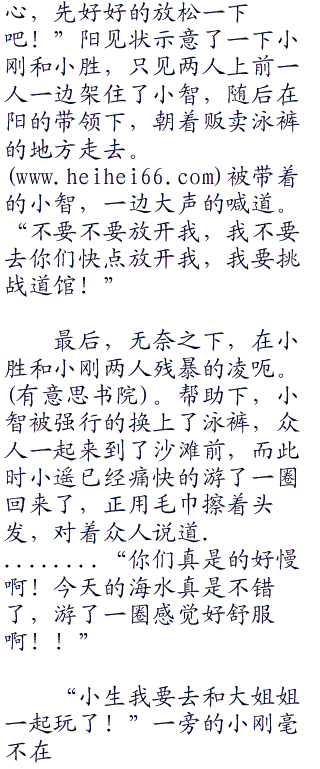 心，先好好的放松一下
吧！”阳见状示意了一下小
刚和小胜，只见两人上前一
人一边架住了小智，随后在
阳的带领下，朝着贩卖泳裤
的地方走去。
(www.heihei66.com)被带着
的小智，一边大声的喊道。
“不要不要放开我，我不要
去你们快点放开我，我要挑
战道馆！”
最后，无奈之下，在小
胜和小刚两人残暴的凌呃。
(有意思书院)。帮助下，小
智被强行的换上了泳裤，众
人一起来到了沙滩前，而此
时小遥已经痛快的游了一圈
回来了，正用毛巾擦着头
发，对着众人说道.
........“你们真是的好慢
啊！今天的海水真是不错
了，游了一圈感觉好舒服
啊！！”
“小生我要去和大姐姐
一起玩了！”一旁的小刚毫
不在